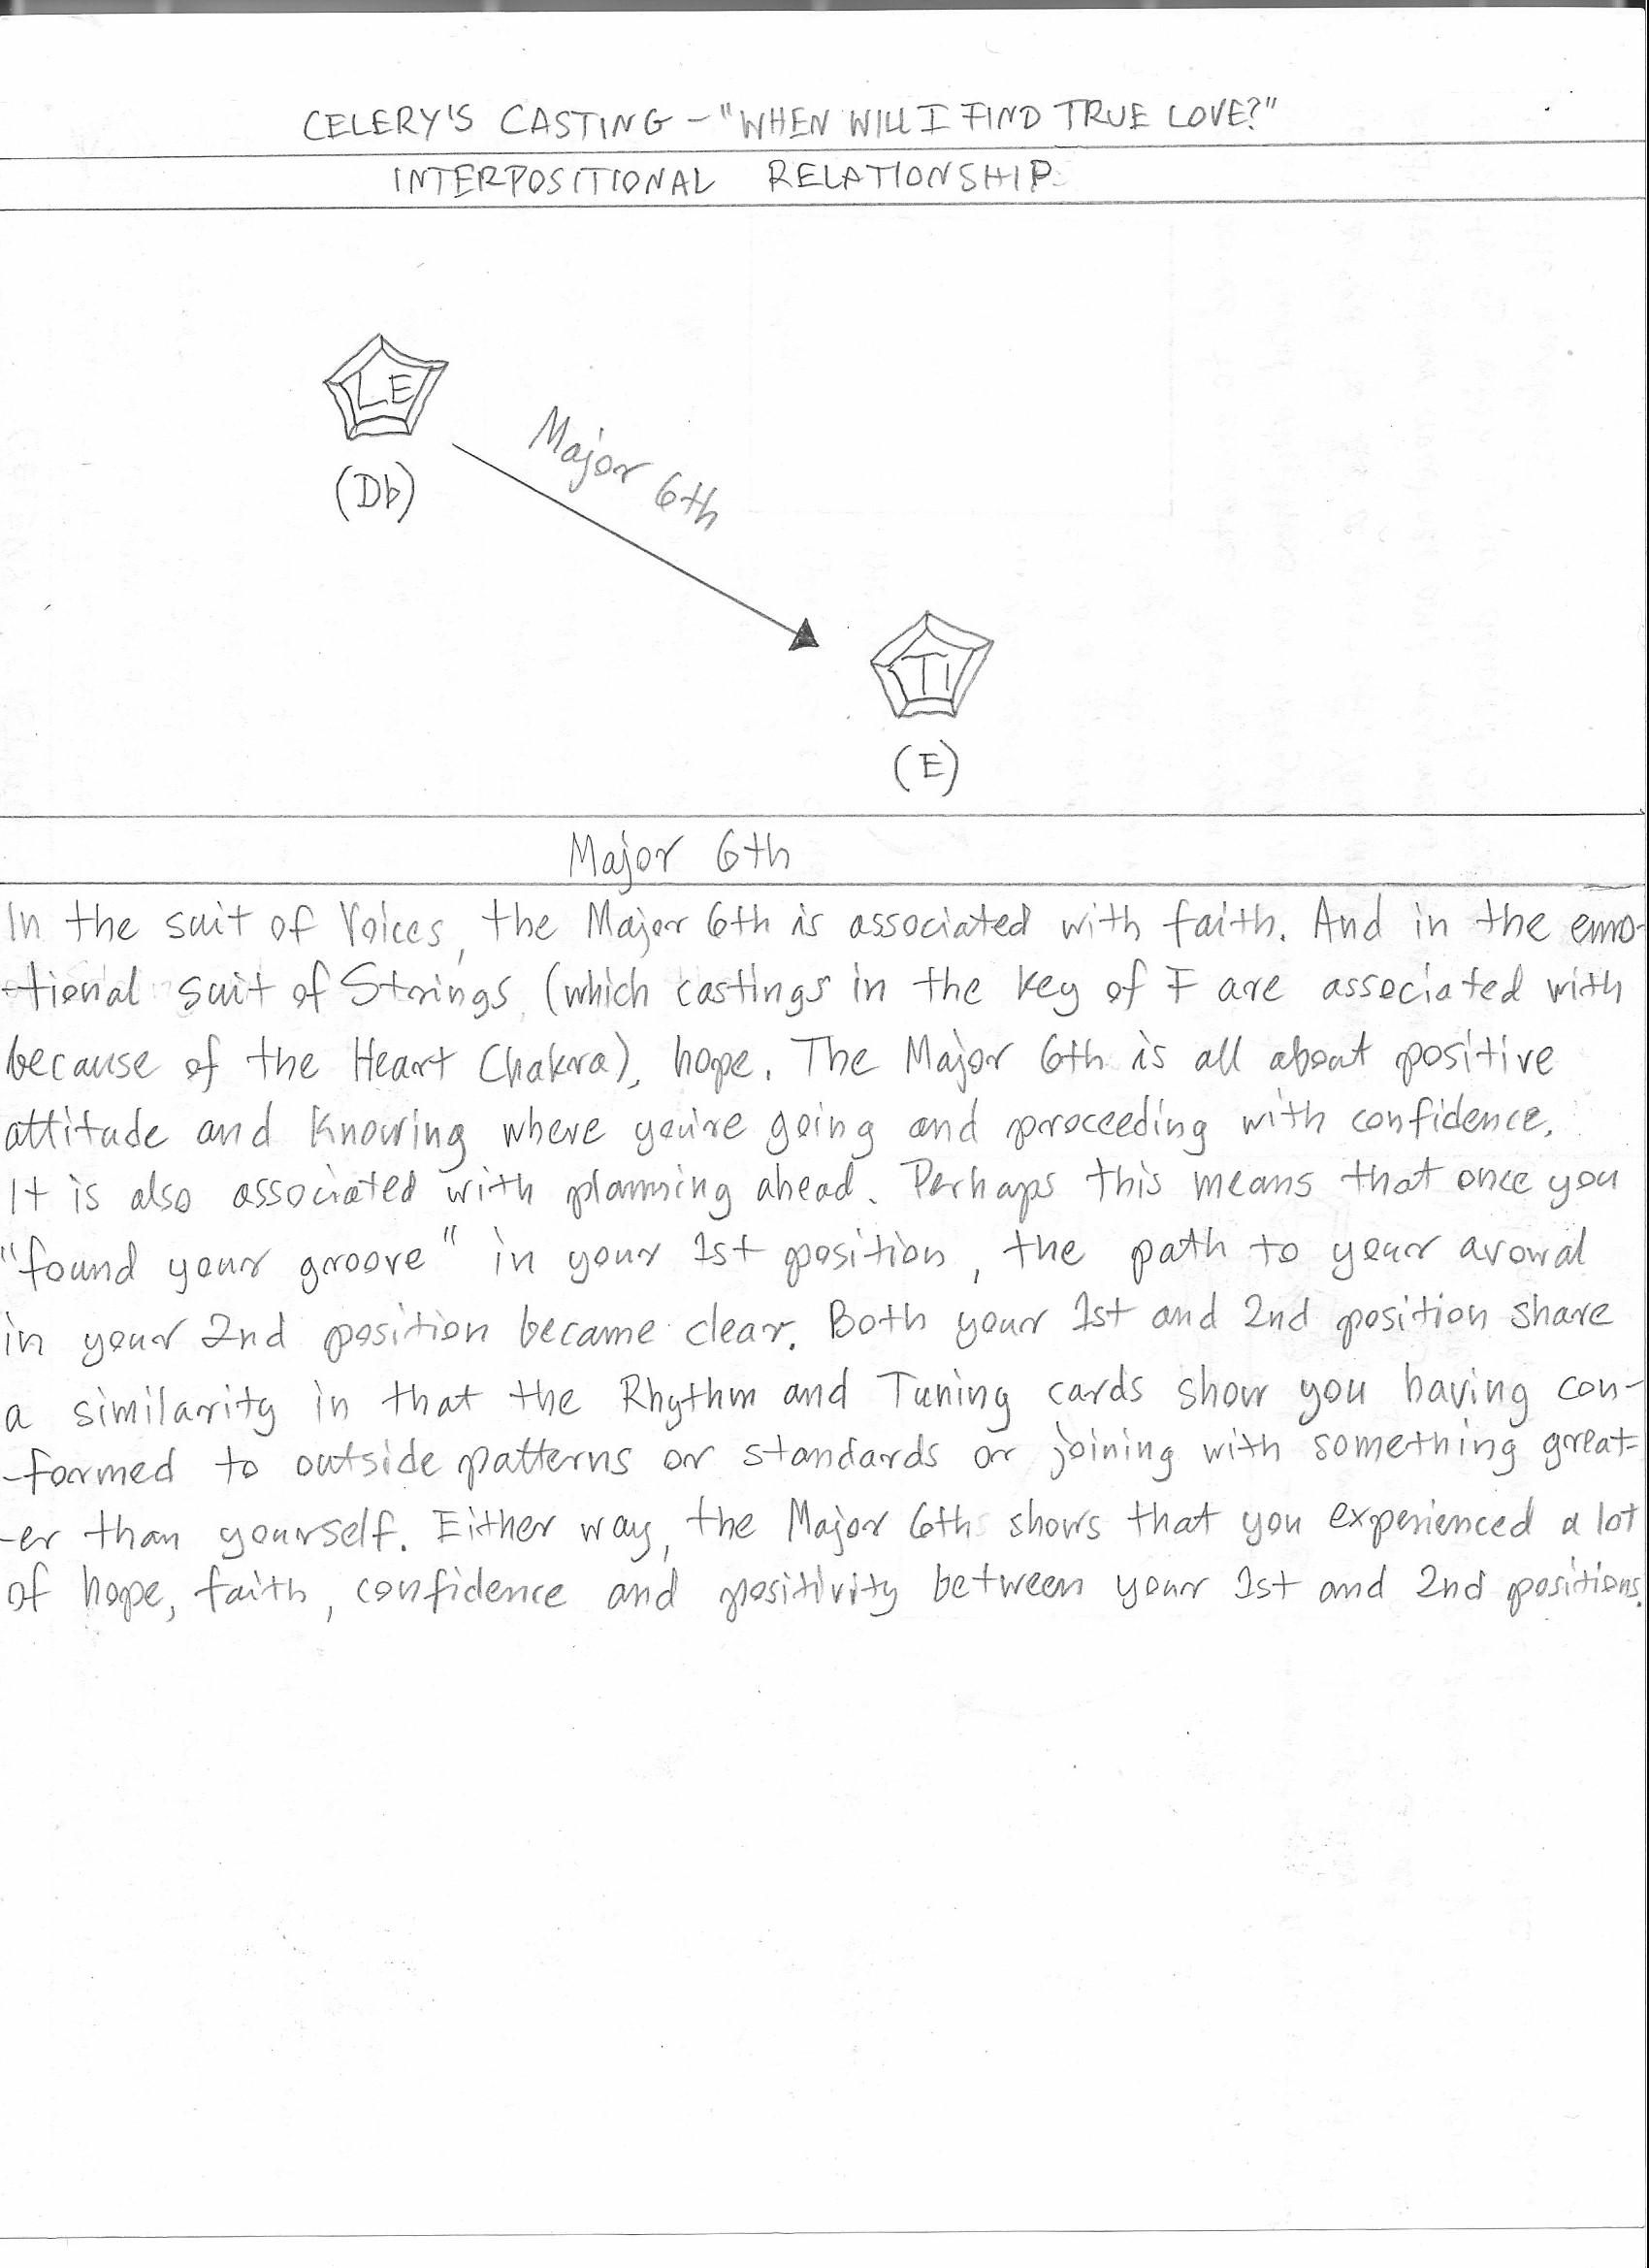 CELERY'S CASTING - "WHEN WILL I FIND TRUE LOVE?"
INTERPOSITIONAL RELATIONSHIP
LE
(Db)
Major 6th
TI
(E)
Major 6th
In the suit of Voices, the Major 6th is associated with faith. And in the emo-
-tional suit of Strings (which castings in the key of F are associated with
because of the Heart Chakra), hope. The Major 6th is all about positive
attitude and knowing where you're going and proceeding with confidence.
It is also associated with planning ahead. Perhaps this means that once you
"found your groove" in your 1st position, the path to your avowal
in your 2nd position became clear. Both your 1st and 2nd position share
a similarity in that the Rhythm and Tuning cards show you having con-
-formed to outside patterns or standards or joining with something great-
-er than yourself. Either way, the Major 6ths shows that you experienced a lot
of hope, faith, confidence and positivity between your 1st and 2nd positions.